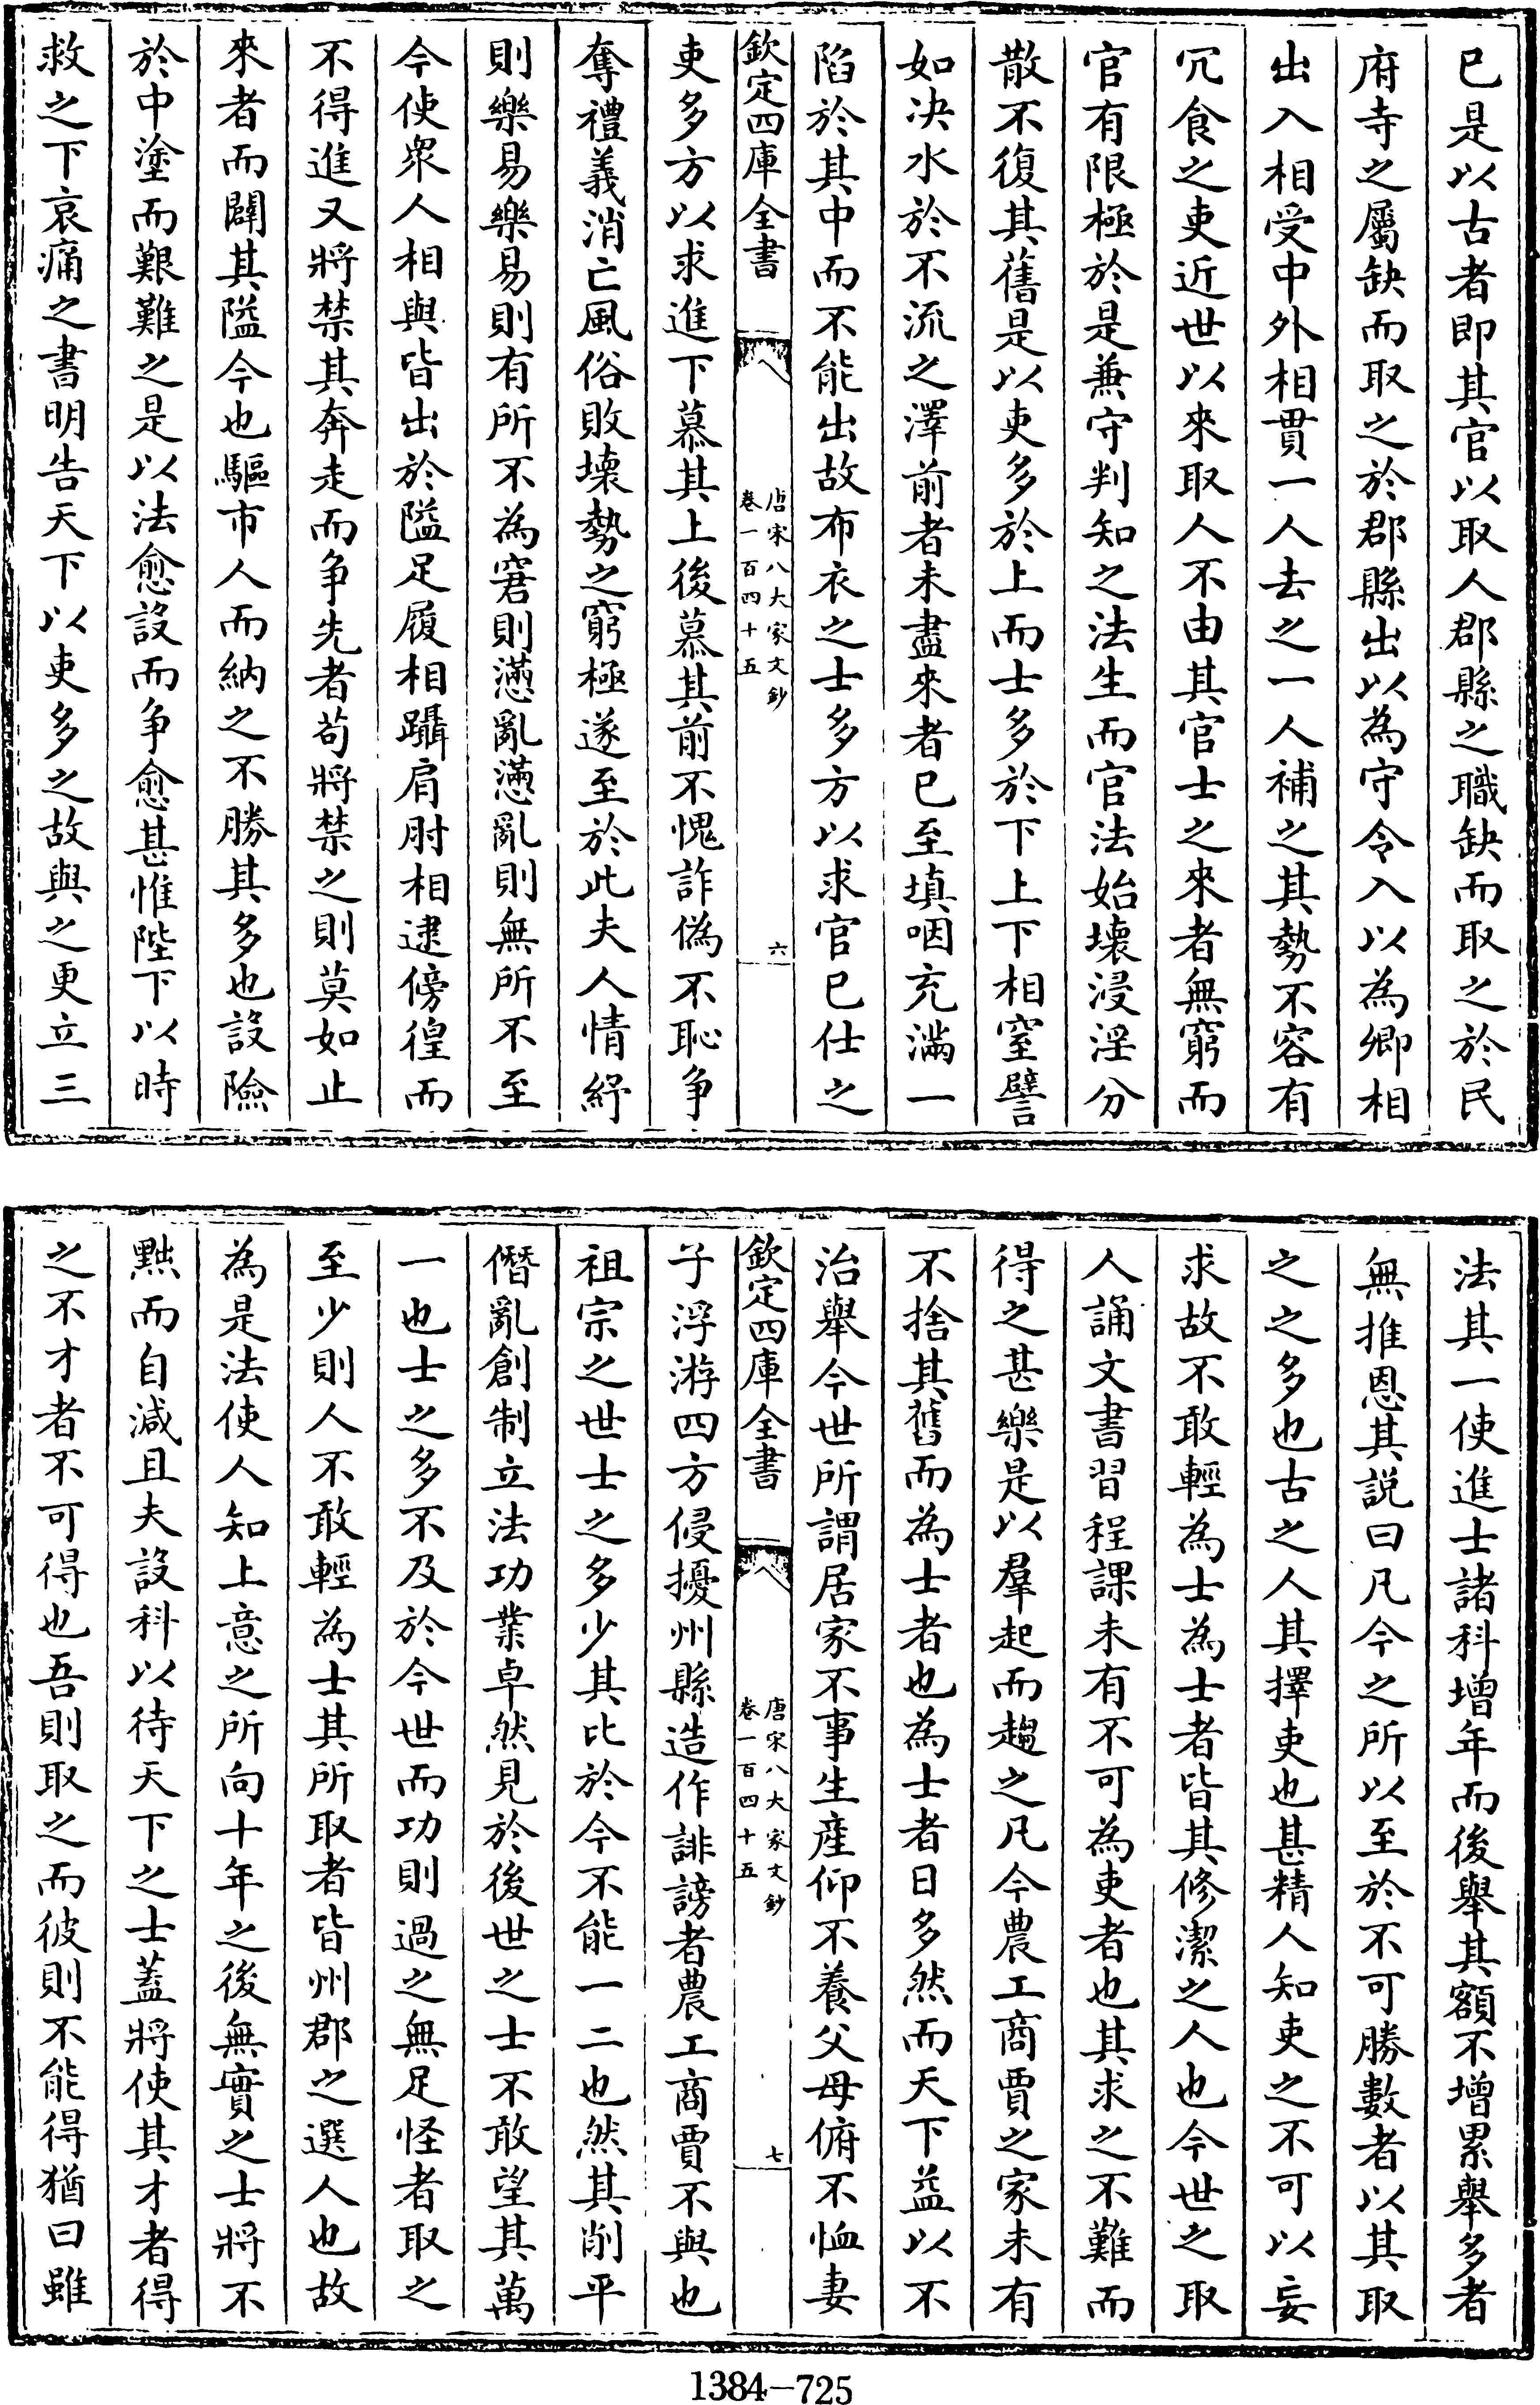 已是以古者即其官以取人郡縣之職缺而取之於民
府寺之屬缺而取之於郡縣出以為守令入以為卿相
出入相受中外相貫一人去之一人補之其勢不容有
冗食之吏近世以來取人不由其官士之來者無窮而
官有限極於是兼守判知之法生而官法始壞浸淫分
散不復其舊是以吏多於上而士多於下上下相窒譬
如决水於不流之澤前者未盡來者已至填咽充滿一
陷於其中而不能出故布衣之士多方以求官已仕之
欽定四庫全書
唐宋八大家文鈔
卷一百四十五
六
吏多方以求進下慕其上後慕其前不愧詐偽不恥争
奪禮義消亡風俗敗壊勢之窮極遂至於此夫人情紓
則樂易樂易則有所不為窘則懣亂懣亂則無所不至
今使衆人相與皆出於隘足履相躡肩肘相逮傍徨而
不得進又將禁其奔走而争先者苟將禁之則莫如止
來者而闢其隘今也驅市人而納之不勝其多也設險
於中塗而艱難之是以法愈設而争愈甚惟陛下以時
救之下哀痛之書明告天下以吏多之故與之更立三
法其一使進士諸科增年而後舉其額不增累舉多者
無推恩其説曰凡今之所以至於不可勝數者以其取
之之多也古之人其擇吏也甚精人知吏之不可以妄
求故不敢輕為士為士者皆其修潔之人也今世之取
人誦文書習程課未有不可為吏者也其求之不難而
得之甚樂是以羣起而趨之凡今農工商賈之家未有
不捨其舊而為士者也為士者日多然而天下益以不
治舉今世所謂居家不事生産仰不養父母俯不恤妻
欽定四庫全書
唐宋八大家文鈔
卷一百四十五
七
子浮游四方侵擾州縣造作誹謗者農工商賈不與也
祖宗之世士之多少其比於今不能一二也然其削平
僭亂創制立法功業卓然見於後世之士不敢望其萬
一也士之多不及於今世而功則過之無足怪者取之
至少則人不敢輕為士其所取者皆州郡之選人也故
為是法使人知上意之所向十年之後無實之士將不
黜而自減且夫設科以待天下之士蓋將使其才者得
之不才者不可得也吾則取之而彼則不能得猶曰雖
1384-725